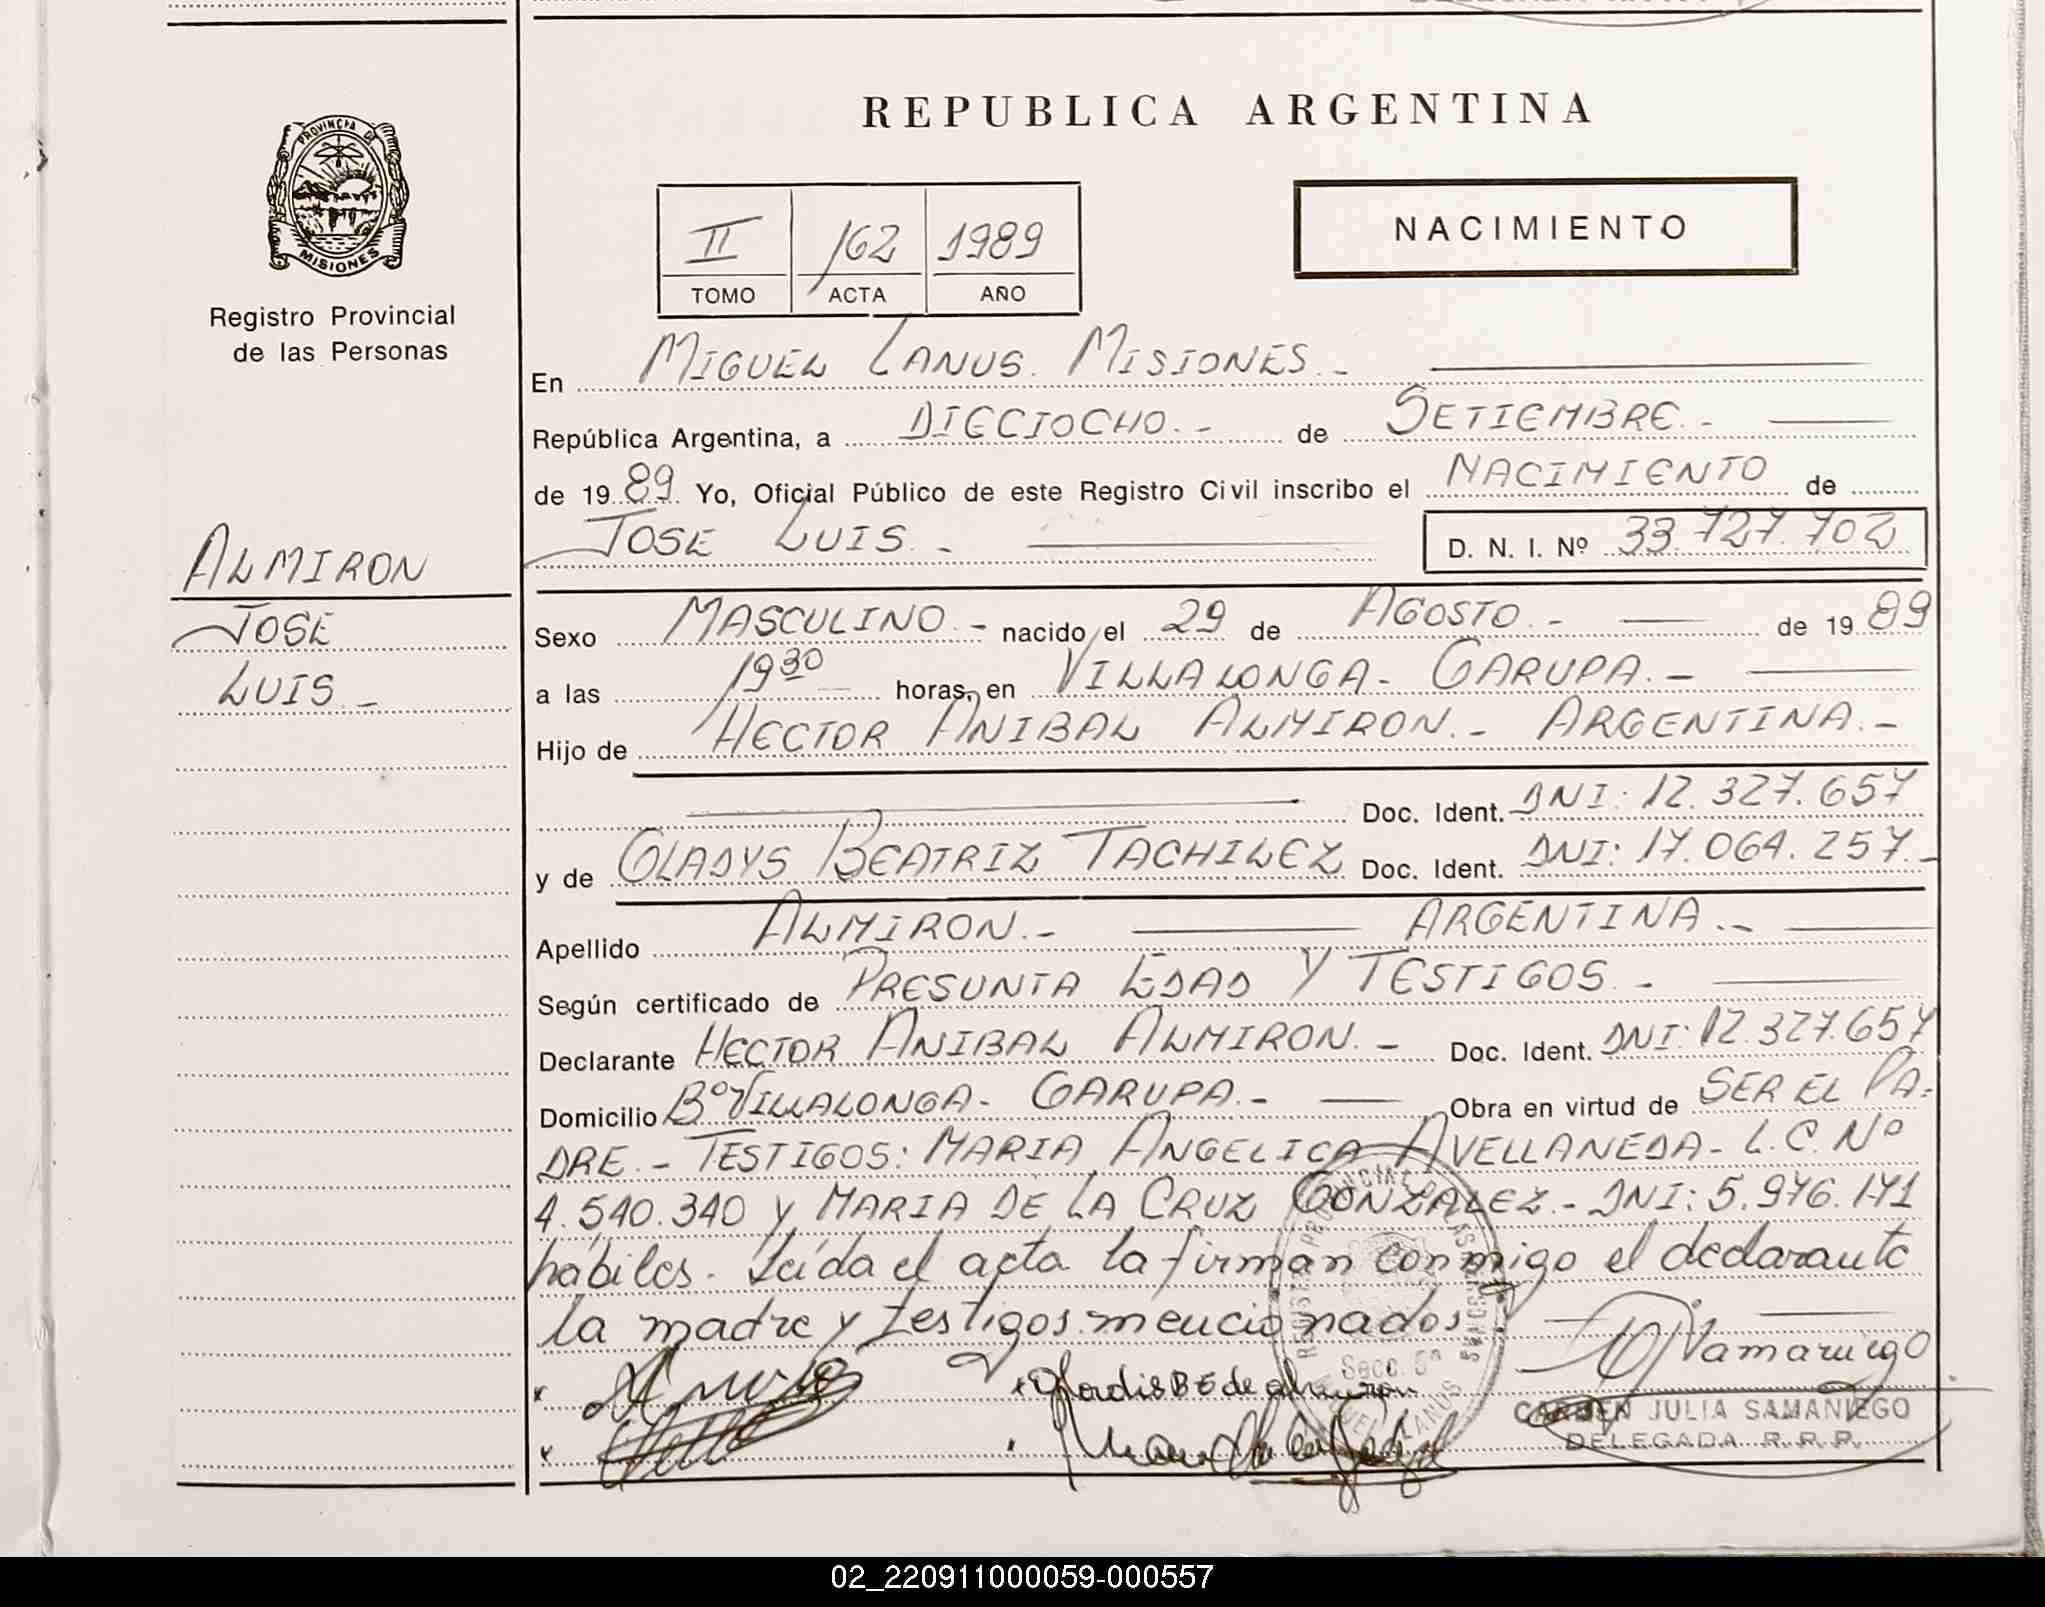 REPUBLICA ARGENTINA
PROVINCIA DE
MISIONES
Registro Provincial
de las Personas
NACIMIENTO
II 162 1989
TOMO ACTA AÑO
En MIGUEL LANUS. MISIONES.-
República Argentina, a DIECIOCHO.- de SETIEMBRE.-
de 1989. Yo, Oficial Público de este Registro Civil inscribo el NACIMIENTO de
JOSE LUIS.-
D. N. I. Nº 33.727.702
ALMIRON
JOSE
LUIS.-
Sexo MASCULINO.- nacido el 29 de AGOSTO.- de 1989
a las 19 30 horas, en VILLALONGA- GARUPA.-
Hijo de HECTOR ANIBAL ALMIRON.- ARGENTINA.-
Doc. Ident. DNI: 12.327.657
y de GLADYS BEATRIZ TACHILEZ Doc. Ident. DNI: 17.064.257.-
Apellido ALMIRON.- ARGENTINA.-
Según certificado de PRESUNTA EDAD Y TESTIGOS.-
Declarante HECTOR ANIBAL ALMIRON.- Doc. Ident. DNI: 12.327.657
Domicilio Bº VILLALONGA- GARUPA.- Obra en virtud de SER EL PA-
DRE.- TESTIGOS: MARIA ANGELICA AVELLANEDA- L.C.Nº
4.540.340 y MARIA DE LA CRUZ GONZALEZ.- DNI: 5.976.171
hábiles. Leída el acta la firman conmigo el declarante
la madre y testigos mencionados.
Secc. 5ª
CARMEN JULIA SAMANIEGO
DELEGADA R.R.P.
02_220911000059-000557